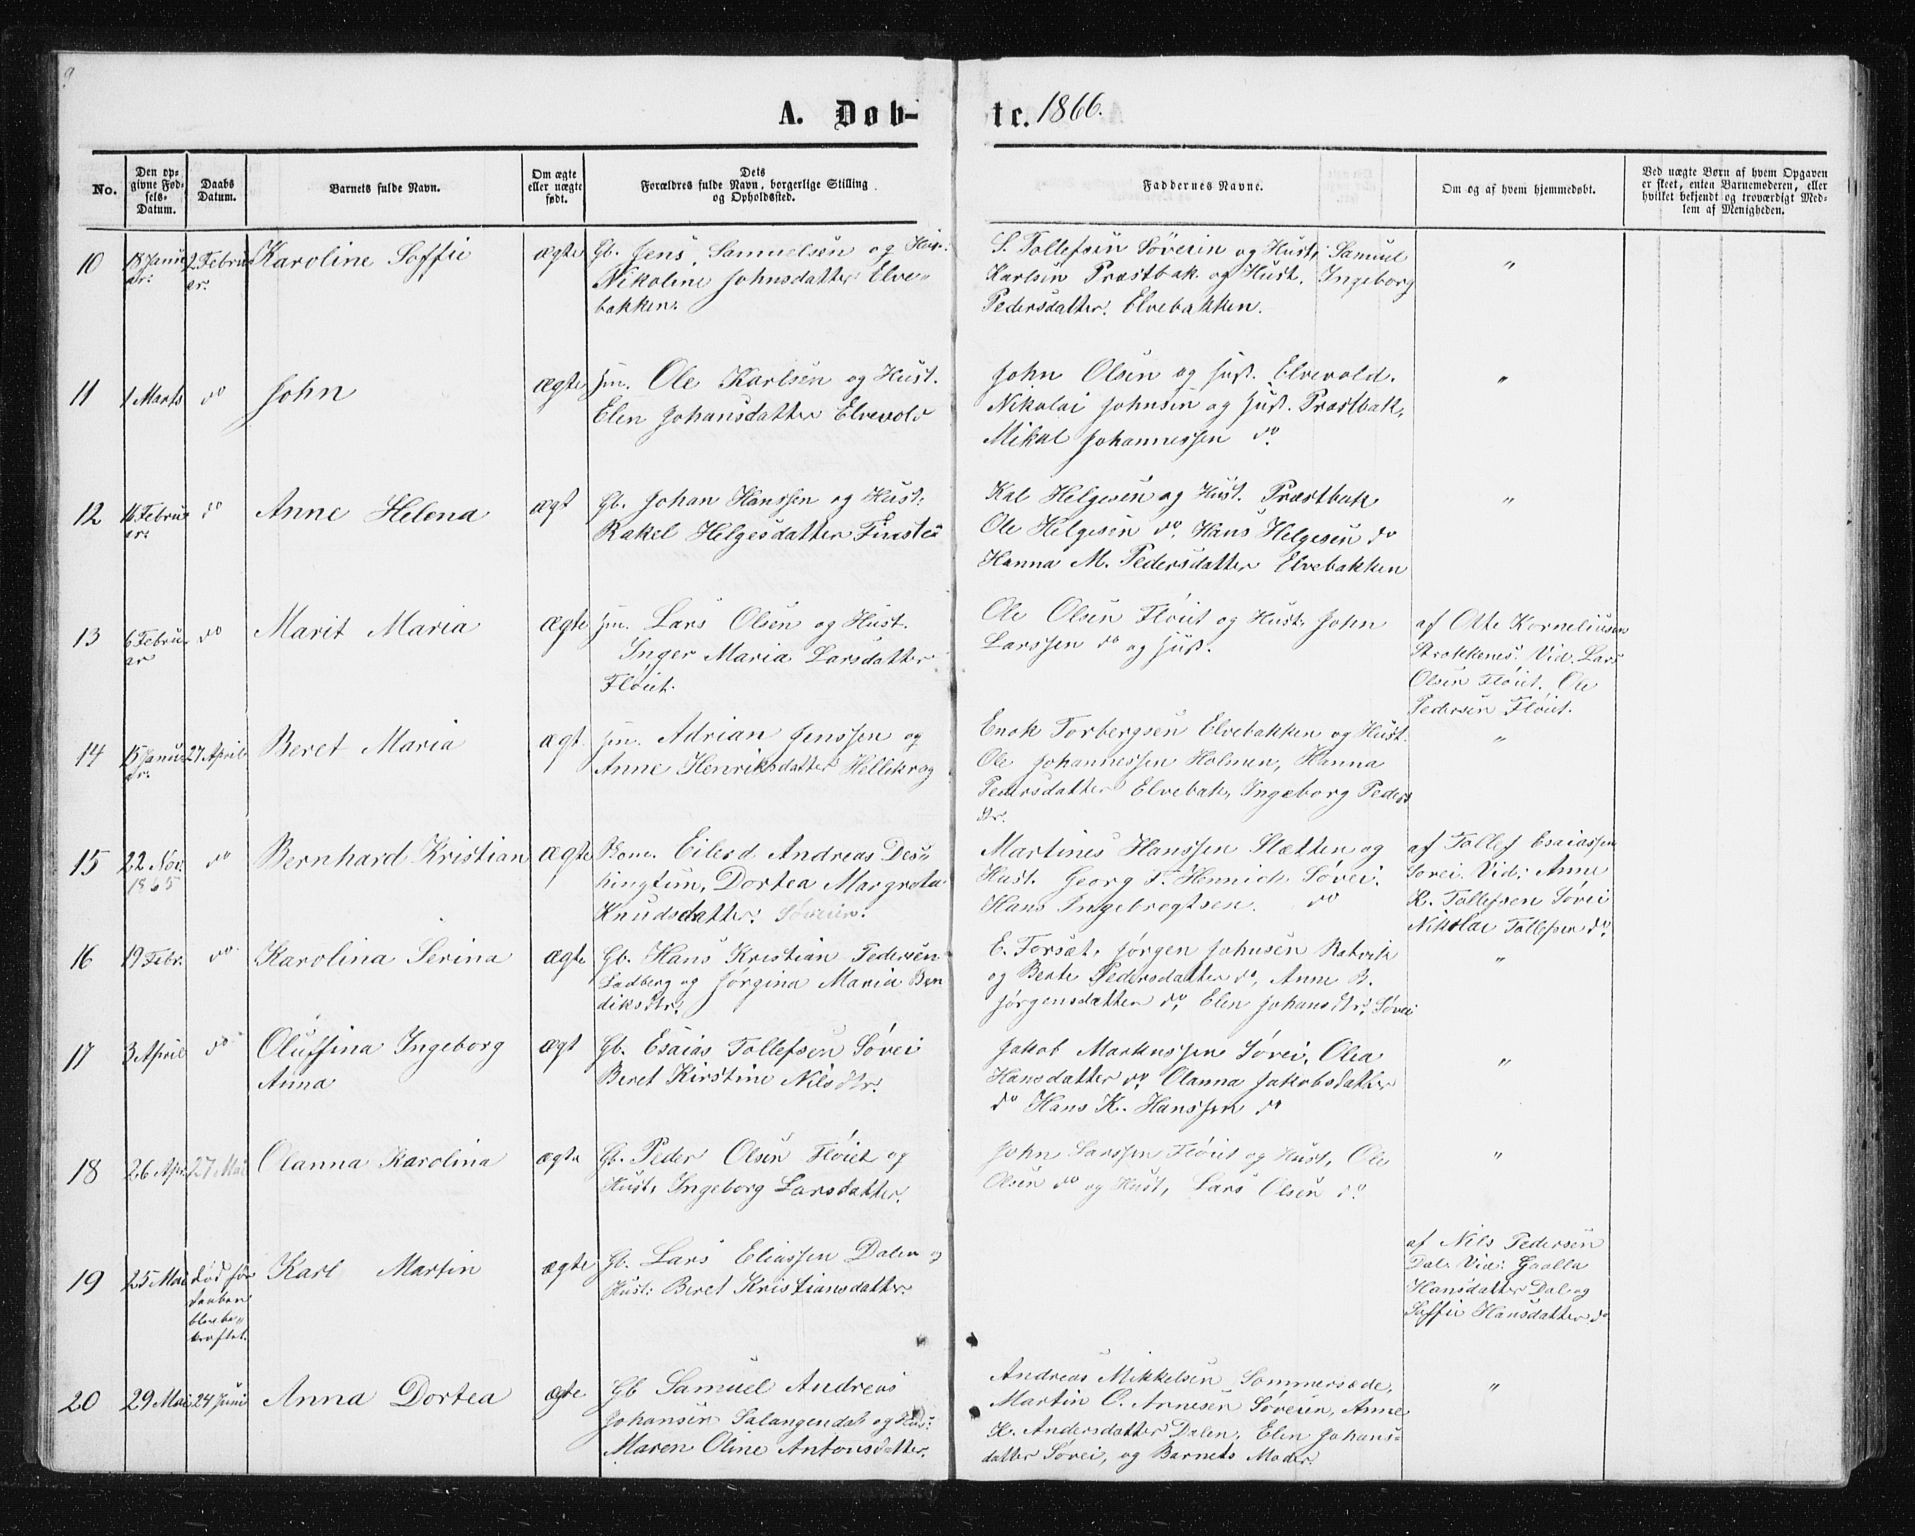 A. Døb-
te. 1866.
No.
Den op-
givne Fød-
sels-
Datum.
Daabs
Datum.
Barnets fulde Navn.
Om ægte
eller uægte
født.
Dets
Forældres fulde Navn, borgerlige Stilling
og Opholdssted.
Faddernes Navne.
Om og af hvem hjemmedøbt.
Ved uægte Børn af hvem Opgaven
er skeet, enten Barnemoderen, eller
hvilket bekjendt og troværdigt Med-
lem af Menigheden.
10 18 Janu 2 Febru Karoline Soffie ægte Gb. Jens Samuelsen og Hust.
ar. ar. Nikoline Johnsdatter Elve-
bakken.
S. Tollefsen Søveien og Hust, Samuel
Karlsen Præstbak og Hust. Ingeborg
Pedersdatter. Elvebakken.
"
11 1 Marts do John ægte Jm. Ole Karlsen og Hust.
Elen Johansdatter Elvevold
John Olsen og Hust. Elvevold.
Nikolai Johnsen og Hust. Præstbak,
Mikal Johannessen do
"
12 16 Febru do Anne Helena ægt Gb. Johan Hanssen og Hust:
ar. Rakel Helgesdatter
Kal Helgesen og Hust. Præstbak
Ole Helgesen do, Hans Helgesen do
Hanna M. Pedersdatter Elvebakken
"
13 6 Febru do Marit Maria ægte Jm. Lars Olsen og Hust.
ar Inger Maria Larsdatter
Fløiet.
Ole Olsen Fløiet og Hust. John
Larssen do og Hust.
af Otte Korneliusen
Strokkenes. Vid. Lars
Olsen Fløiet. Ole
Pedersen Fløiet.
14 15 Janu 27 April Beret Maria ægt Jm. Adrian Jenssen og
ar. Anne Henriksdatter Hellekrog
Enok Torbergsen Elvebakken og Hust.
Ole Johannessen Holmen, Hanna
Pedersdatter Elvebak, Ingeborg Peders
dtr.
"
15 22 Nov. do Bernhard Kristian ægte Eilerd Andreas Des-
1865 kingtun, Dortea Margreta
Knudsdatter: Søveien.
Martines Hanssen Slætten og
Hust. Georg F. Hennich Søvei.
Hans Ingebrogtsen. do
af Tollef Esaiassen
Sovei. Vid: Anne
K. Tollefsen Søvei
Nikolai Tollefsen do.
16 19 Febr. do Karolina Serina ægte Gb. Hans Kristian Pedersen
Ladberg og Jørgina Maria Ben
diksdtr.
E. Forset, Jørgen Johnsen Ratvik
og Berte Pedersdatter do, Anne B.
Jørgensdatter do, Elen Johansdtr, Søvei
"
17 3 April do Oluffina Ingeborg ægt Gb. Esaias Tollefsen Søvei
Anna Beret Kirstine Nilsdtr.
Jakob Markussen Søvei, Olea
Hansdatter do, Olanna Jakobsdatter
do Hans K. Hanssen do
"
18 26 Apr. 27 Mai Olanna Karolina ægte Gb. Peder Olsen Fløiet og
Hust, Ingeborg Larsdatter.
John Larssen Fløiet og Hust, Ole
Olsen do og Hust, Lars Olsen do
"
19 25 Mai død før Karl Martin ægte Gb. Lars Eliassen Dalen og
daaben Hust: Beret Kristiansdatter
blev be-
kræftet.
af Nils Pedersen
Dal. Vid: Gaalla
Hansdatter Dal og
Soffie Hansdatter do
20 29 Mai 24 Juni Anna Dortea ægte Gb Samuel Andreas
Johansen Salangendal og Hust:
Maren Oline Antonsdatter.
Andreas Mikkelsen Sommersæde,
Martin O. Arnesen Søveien, Anne
K. Andersdatter Dalen. Elen Johans-
datter Søvei, og Barnets Moder.
"